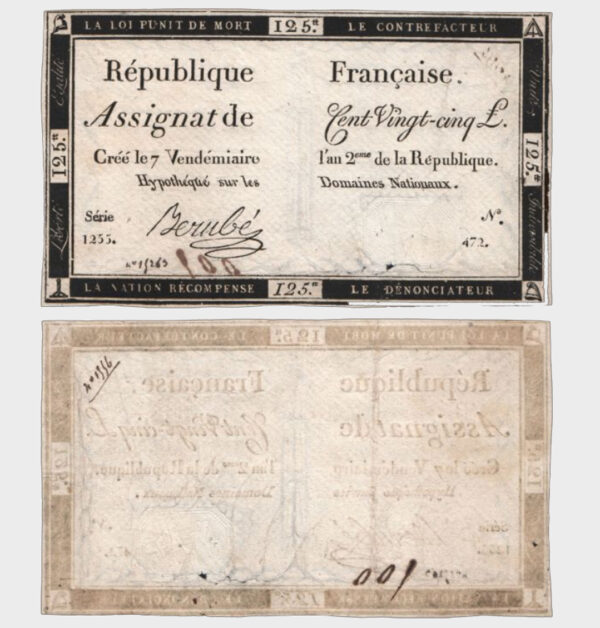 LA LOI PUNIT DE MORT 125.tt LE CONTREFACTEUR
République Française.
Assignat de Cent Vingt-cinq £.
Créé le 7 Vendémiaire l'an 2eme de la République.
Hypothéqué sur les Domaines Nationaux.
Série
1255.
Berubé
No.
472.
nº 15263
001
Liberté 125.tt Egalité
Unité 125.tt Indivisibilité
LA NATION RÉCOMPENSE 125.tt LE DÉNONCIATEUR
001